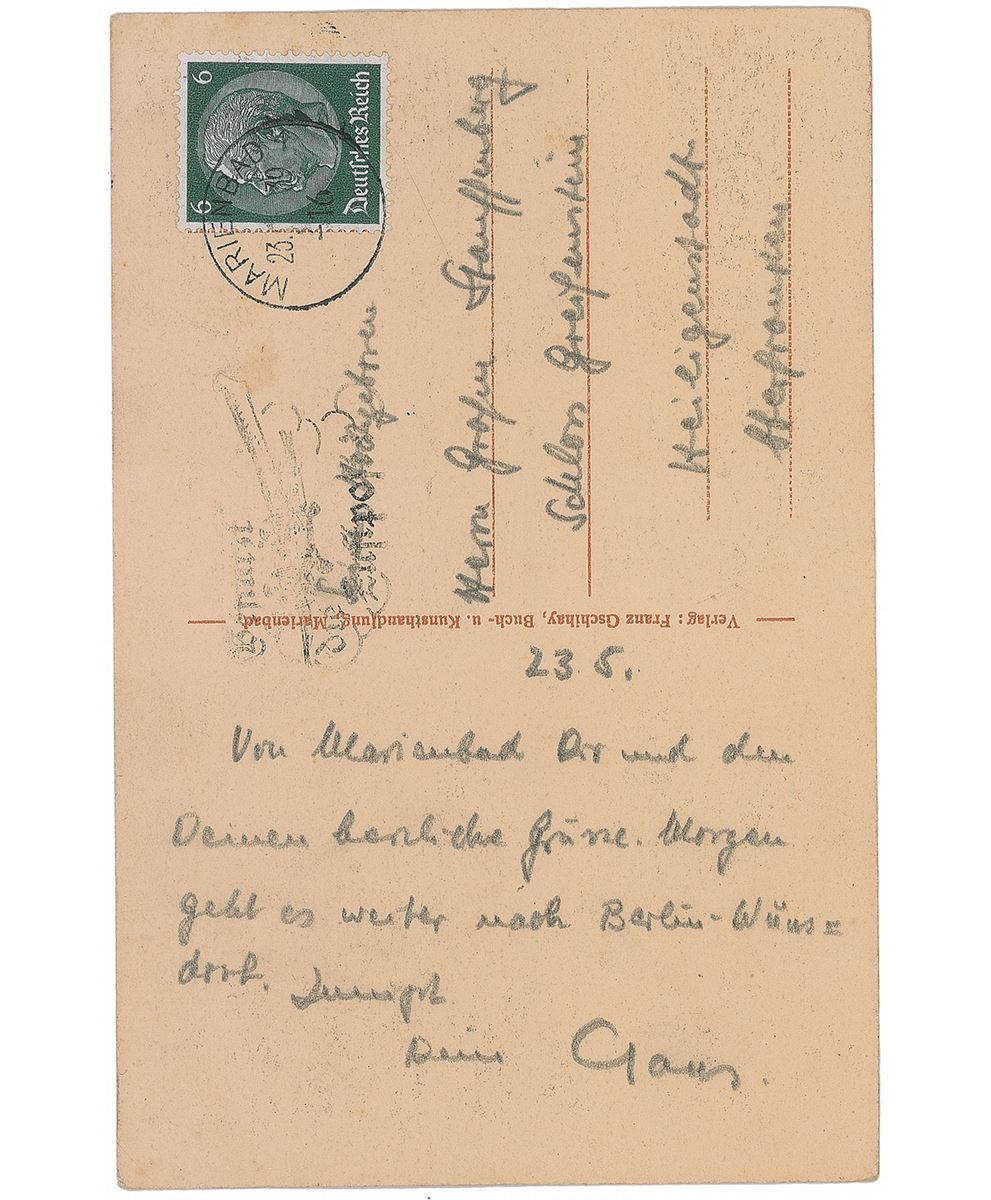 6
6
Deutsches Reich
MARIENBAD
23.
39
16
Hochgeboren
Herrn Grafen Stauffenberg
Schloss Greifenstein
Heiligenstadt
Oberfranken.
Verlag: Franz Gschihay, Buch- u. Kunsthandlung, Marienbad
23 5.
Von Marienbad Dir und den
Deinen herzliche Grüsse. Morgen
geht es weiter nach Berlin-Wüns=
dorf. Innigst
Dein Claus.